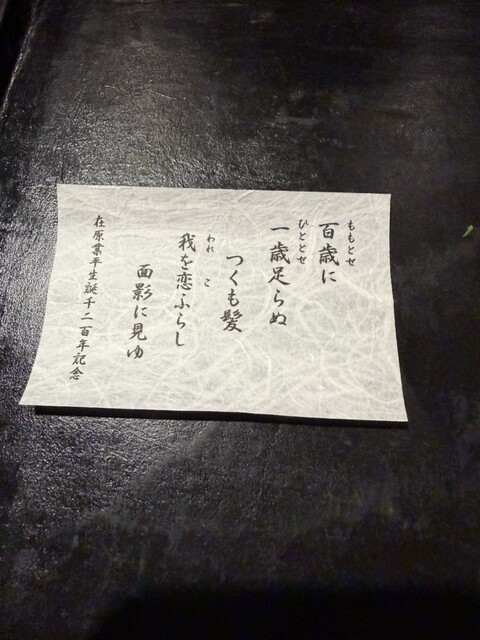 百歳に
ももとせ
一歳足らぬ
ひととせ
つくも髪
我を恋ふらし
われ こ
面影に見ゆ
在原業平生誕千二百年記念